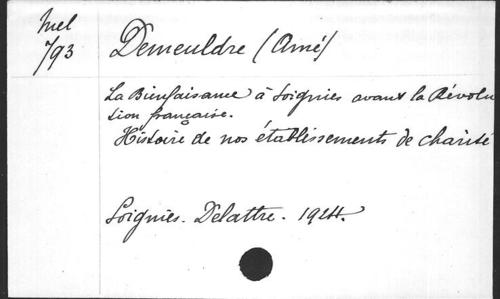 Mel
793
Demeuldre (Amé)
La Bienfaisance à Soignies avant la Révolu
tion française.
Histoire de nos établissements de charité
Soignies. Delattre. 1914.